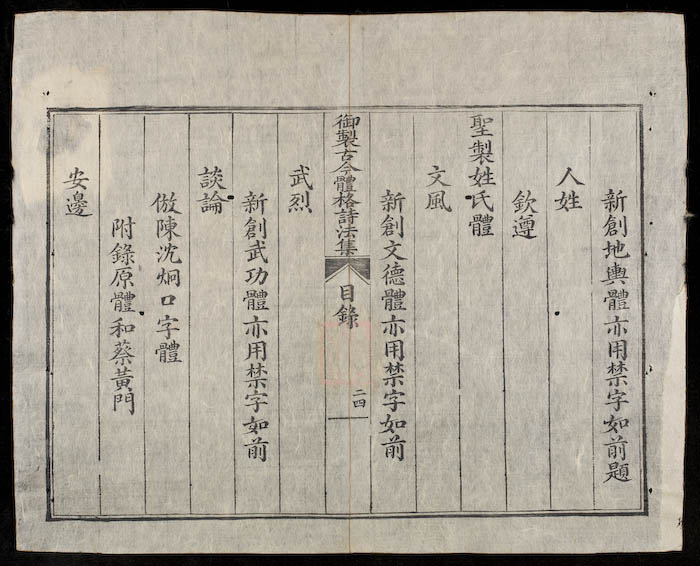 新創地輿體亦用禁字如前題
人姓
欽遵
聖製姓氏體
文風
新創文德體亦用禁字如前
御製古今體格詩法集
目錄
二四
武烈
新創武功體亦用禁字如前
談論
倣陳沈炯口字體
附錄原體和蔡黃門
安邊